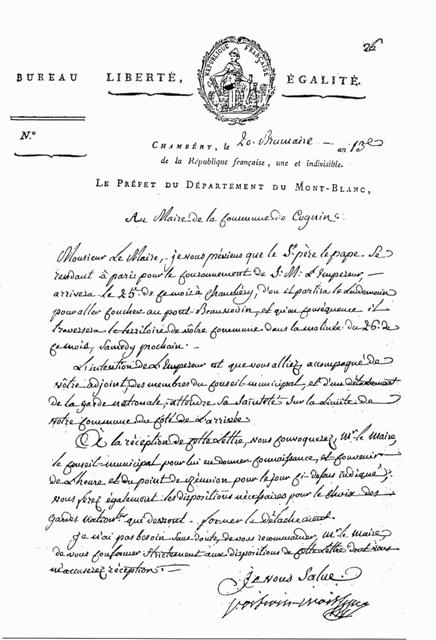 26
BUREAU LIBERTÉ, ÉGALITÉ.
RÉPUBLIQUE FRANÇAISE
N.º
CHAMBÉRY, le 20. Brumaire — an 13e
de la République française, une et indivisible.
LE PRÉFET DU DÉPARTEMENT DU MONT-BLANC,
Au Maire de la Commune de Cognin.
Monsieur Le Maire, je vous préviens que le St. père le pape. Se
rendant à paris pour le couronnement de S. M. L'Empereur,
arrivera le 25. de ce mois à Chambéry, d'où il partira le lendemain
pour aller coucher au pont-Beauvoisin, et qu'en conséquence il
traversera le territoire de votre Commune dans la matinée du 26. de
ce mois, Samedy prochain.
L'intention de L'Empereur est que vous alliez, accompagné de
votre adjoint, des membres du Conseil municipal, et d'un détachement
de la garde nationale, attendre sa Sainteté sur la Limite de
votre Commune du Côté de L'arrivée
À la réception de cette Lettre, vous convoquerez, Mr. le Maire,
le Conseil municipal pour lui en donner connaissance, et convenir
de L'heure et du point de réunion pour le jour ci-dessus indiqué;
vous ferez également les dispositions nécessaires pour le Choix des
gardes nation.les qui devront former le détachement.
Je n'ai pas besoin sans doute, de vous recommander, Mr. le Maire
de vous conformer strictement aux dispositions de cette Lettre dont vous
m'accuserez réception.
Je vous Salue.